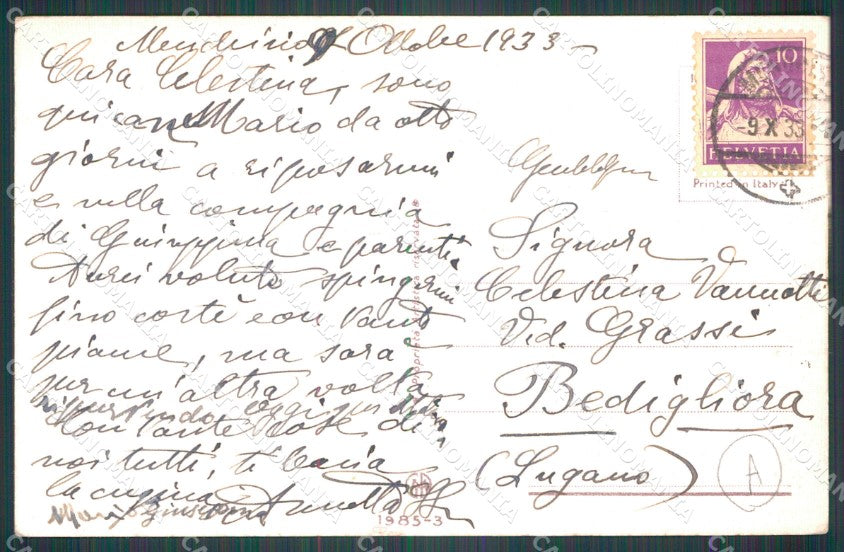 Mendrisio 9 Ottobre 1933
Cara Celestina, sono
qui con Mario da otto
giorni a riposarmi
e nella compagnia
di Giuseppina e parenti.
Avrei voluto spingermi
fino costì e con tanto
piacere, ma sarà
per un'altra volta
oggi
Con tante cose di
noi tutti, ti bacia
la cugina Annetta
Mario Giuseppina
10
HELVETIA
9 X 33
Printed in Italy
Signora
Celestina Vannotti
Ved. Grassi
Bedigliora
(Lugano)
A
Proprietà artistica riservata
1985-3
CARTOLINOMANIA